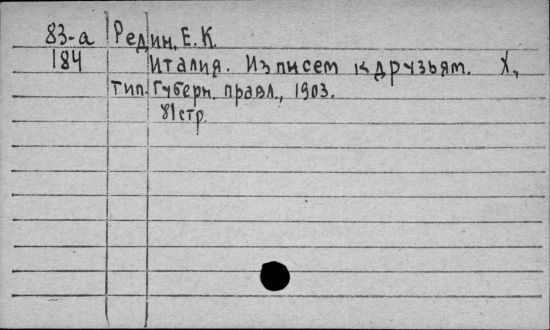 83-а Редин, Е.К.
184 Италия. Из писем к друзьям. Х.,
тип. Губерн. правл., 1903.
81 стр.